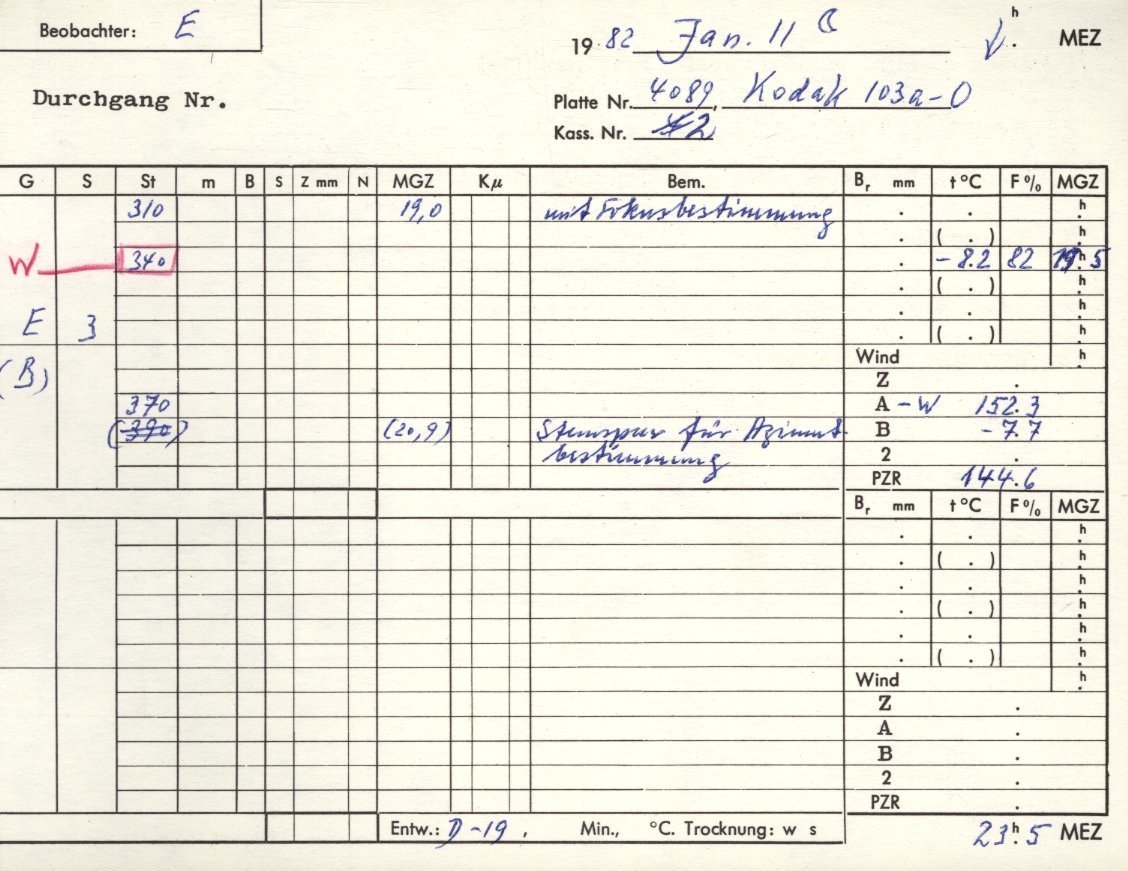 Beobachter: E
19 82 Jan. 11 h MEZ
Durchgang Nr.
Platte Nr. 4089, Kodak 103a-O
Kass. Nr. 2
G S St m B S Z mm N MGZ Kμ Bem. Br mm t °C F % MGZ
310 19,0 mit Fokusbestimmung . . h
. ( . ) h
W 340 . -8.2 82 19 h 5
. ( . ) h
. . h
E 3 . ( . ) h
Wind h
(B) Z .
370 A - W 152.3
(390) (20,9) Sternspur für Azimut B -7.7
bestimmung 2 .
PZR 144.6
Br mm t °C F % MGZ
. . h
. ( . ) h
. . h
. ( . ) h
. . h
. ( . ) h
Wind h
Z .
A .
B .
2 .
PZR .
Entw.: D-19, Min., °C. Trocknung: w s
23 h 5 MEZ